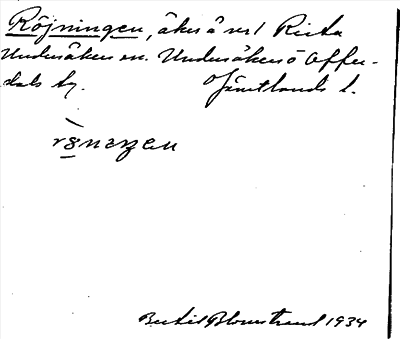 Röjningen, åker å ver 1 Rista
Undersåkers sn. Undersåkers o Offer-
dals tg. Jämtlands l.
Bertil Blomstrand 1934